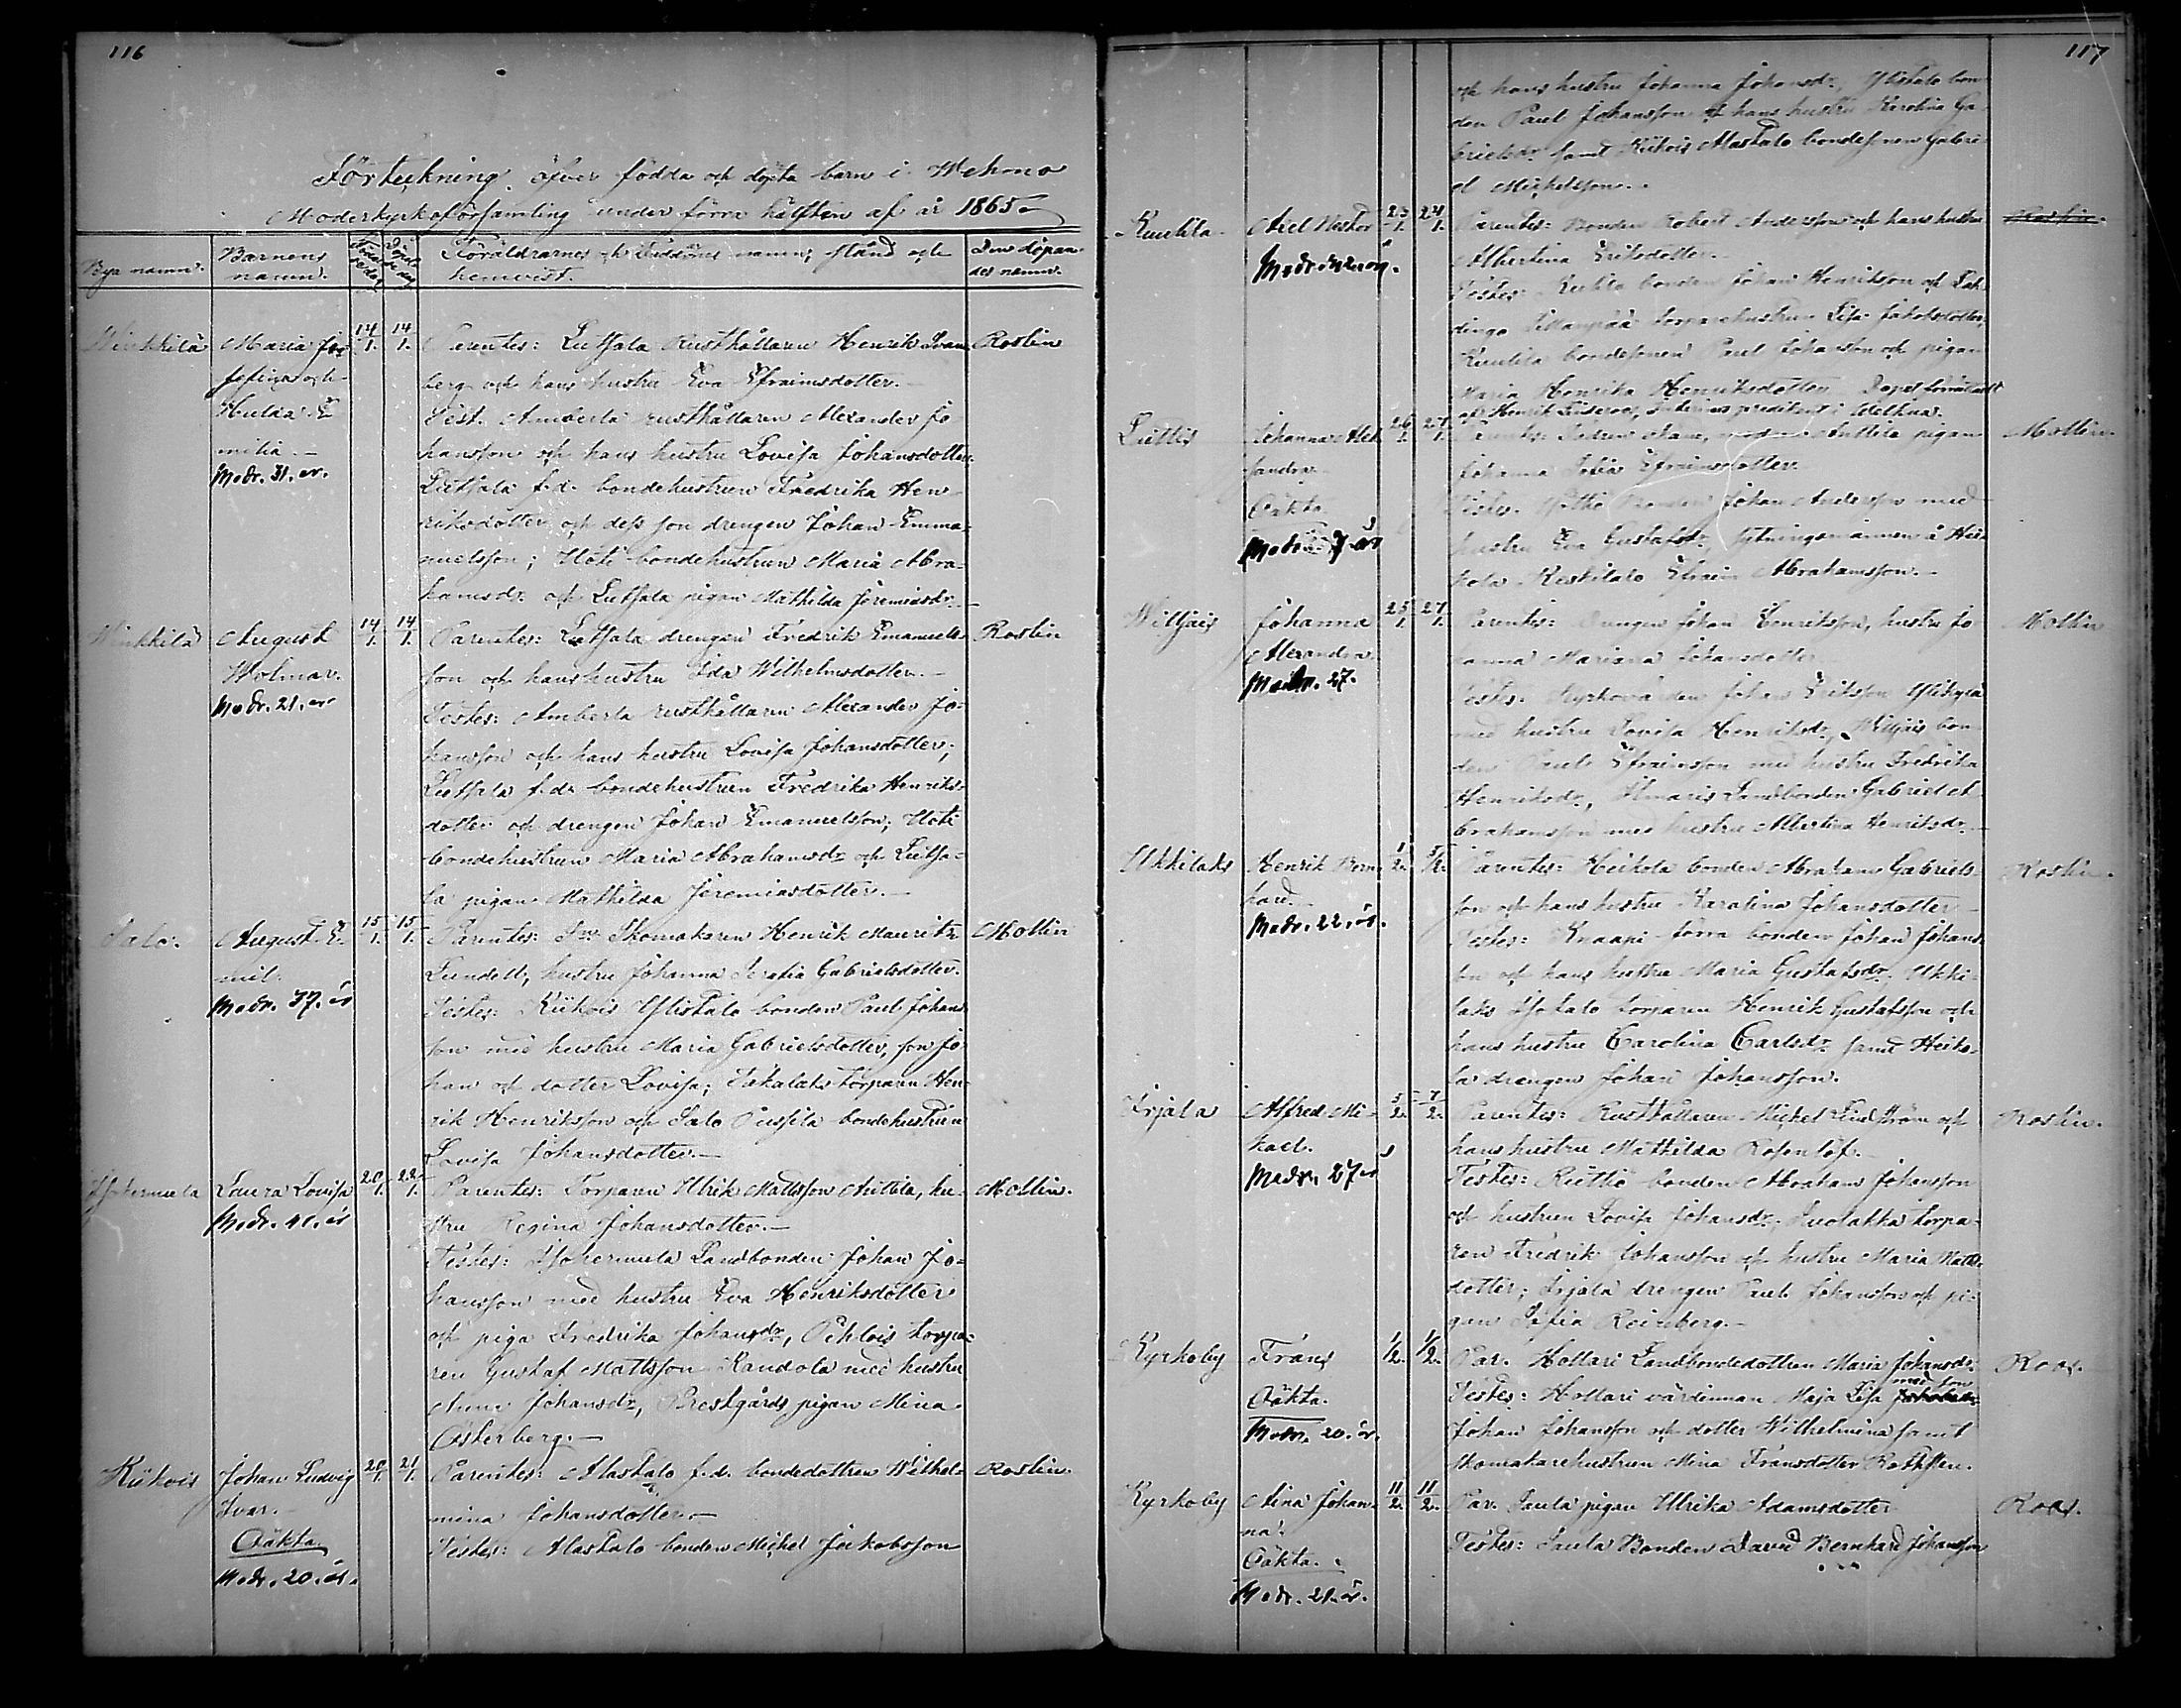 116
Förteckning öfver födda och döpta barn i Wehmo
Moderkyrkoförsamling under förra hälften af år 1865.
Bya namn.
Barnens namn.
Föräldrarnes och Faddrars namn, stånd och hemvist.
Den döpandes namn.
Winkkilä
Maria Jo-
sefina och
Hulda E-
milia.
Modr. 31. år.
14/1.
14/1.
Parentes: Lutsala Rusthållaren Henrik Gran
berg och hans hustru Eva Efraimsdotter.
Test. Amberla rusthållaren Alexander Jo
hansson och hans hustru Lovisa Johansdotter
Lutsala f.d. bondehustrun Fredrika Hen
riksdotter och dess son drengen Johan Emma-
nuelsson; Uoti bondehustrun Maria Abra-
hamsdr. och Lutsala pigan Mathilda Jeremiasdr.
Roslin
Winkkilä
August
Wolmar.
Modr. 21. år
14/1.
14/1.
Parentes: Lutsala drengen Fredrik Emanuels-
son och hans hustru Ida Wilhelmsdotter.
Testes: Amberla rusthållaren Alexander Jo-
hansson och hans hustru Lovisa Johansdotter;
Lutsala f.d. bondehustrun Fredrika Henriks-
dotter och drengen Johan Emanuelsson; Uoti
bondehustrun Maria Abrahamsdr. och Lutsa-
la pigan Mathilda Jeremiasdotter.
Roslin
Salo.
August E-
mil.
Modr. 37. år
15/1.
15/1.
Parentes: Skomakaren Henrik Mauritz
Lundell, hustru Johanna Serafia Gabrielsdotter.
Testes: Kiikois Ylistalo bonden Paul Johans
son med hustru Maria Gabrielsdotter, son Jo-
han och dotter Lovisa; torparen Hen-
rik Henriksson och Salo Pussila bondehustrun
Lovisa Johansdotter.
Mollin
Laura Lovisa
Modr. 40. år
20/1.
22/1.
Parentes: Torparen Ulrik Mattsson Anttila, hu-
stru Regina Johansdotter.
Testes: Landbonden Johan Jo-
hansson med hustru Eva Henriksdotter
och piga Fredrika Johansdr, Pehlois torpa-
ren Gustaf Mattsson Randola med hustru
Anna Johansdr, Prestgårds pigan Mina
Österberg.
Mollin.
Kiikois
Johan Ludvig
Ivar.
Oäkta.
Modr. 20. år.
20/1.
21/1.
Parentes: Alastalo f.d. bondedottren Wilhel-
mina Johansdotter
Testes: Alastalo bonden Michel Jakobsson
Roslin.
117
och hans hustru Johanna Johansdr., Ylistalo bon
den Paul Johansson och hans hustru Karolina Ga-
brielsdr. samt Kiikois Alastalo bondesonen Gabri-
el Michelsson.
Kuulila
Axel Nestor
Modr. 42. år.
23/1.
24/1.
Parentes: Bonden Robert Andersson och hans hustru
Albertina Eriksdotter.
Testes: bonden Johan Henriksson och Lah
dingo torparehustrun Lisa Jakobsdotter,
Kuulila bondesonen Paul Johansson och pigan
Maria Henrika Henriksdotter. Dopet förrättadt
af Henrik
Roslin
Johanna Alex
sandra.
Oäkta.
26/1.
27/1.
Anttila pigan
Johanna Sofia Efraimsdotter
Testes. Bonden Johan Andersson med
hustru Eva Gustafsdr, sytningsmannen å Hei
kola Keskitalo Efraim Abrahamsson.
Mollin.
Willjais
Johanna
Alexandra
Modr. 27.
25/1.
27/1.
Parentes: Drengen Johan Henriksson, hustru Jo
hanna Mariana Johansdotter
Testes: Kyrkovärden Johan Eriksson
med hustru Lovisa Henriksdr, Willjais bon
den Paul Efraimsson med hustru Fredrika
Henriksdr, Landbonden Gabriel A
brahamsson med hustru Albertina Henriksdr.
Mollin
Ukkilaks
Henrik Bern-
hard.
Modr. 22. år.
1/2.
5/2.
Parentes: Heikola bonden Abraham Gabriels-
son och hans hustru Karolina Johansdotter
Testes: Knaapi förra bonden Johan Johans
son och hans hustru Maria Gustafsdr, Ukki-
laks Isotalo torparen Henrik Gustafsson och
hans hustru Carolina Carlsdr. samt Heiko-
la drengen Johan Johansson.
Roslin.
Irjala
Alfred Mi-
kael.
Modr. 27 år
5/2.
7/2.
Parentes: Rusthållaren Michel Lindström och
hans hustru Mathilda Rosenlöf.
Testes: bonden Abraham Johansson
och hustrun Lovisa Johansdr. torpa-
ren Fredrik Johansson och hustru Maria Matts
dotter; Irjala drengen Paul Johansson och pi-
gan Sofia Reinberg.
Roslin.
Kyrkoby
Frans
Oäkta.
Modr. 20. år.
1/2.
1/2.
Par. Hollari Landbondedottren Maria Johansdr.
Testes: Hollari värdinnan Maja Lisa med son
Johan Johansson och dotter Wilhelmina samt
skomakarehustrun Mina Fransdotter
Roos.
Kyrkoby
Aina Johan-
na.
Oäkta.
Modr. 21. år.
11/2.
11/2.
Par. Jaula pigan Ulrika Adamsdotter
Testes: Jaula Bonden David Bernhard Johansson
Roos.